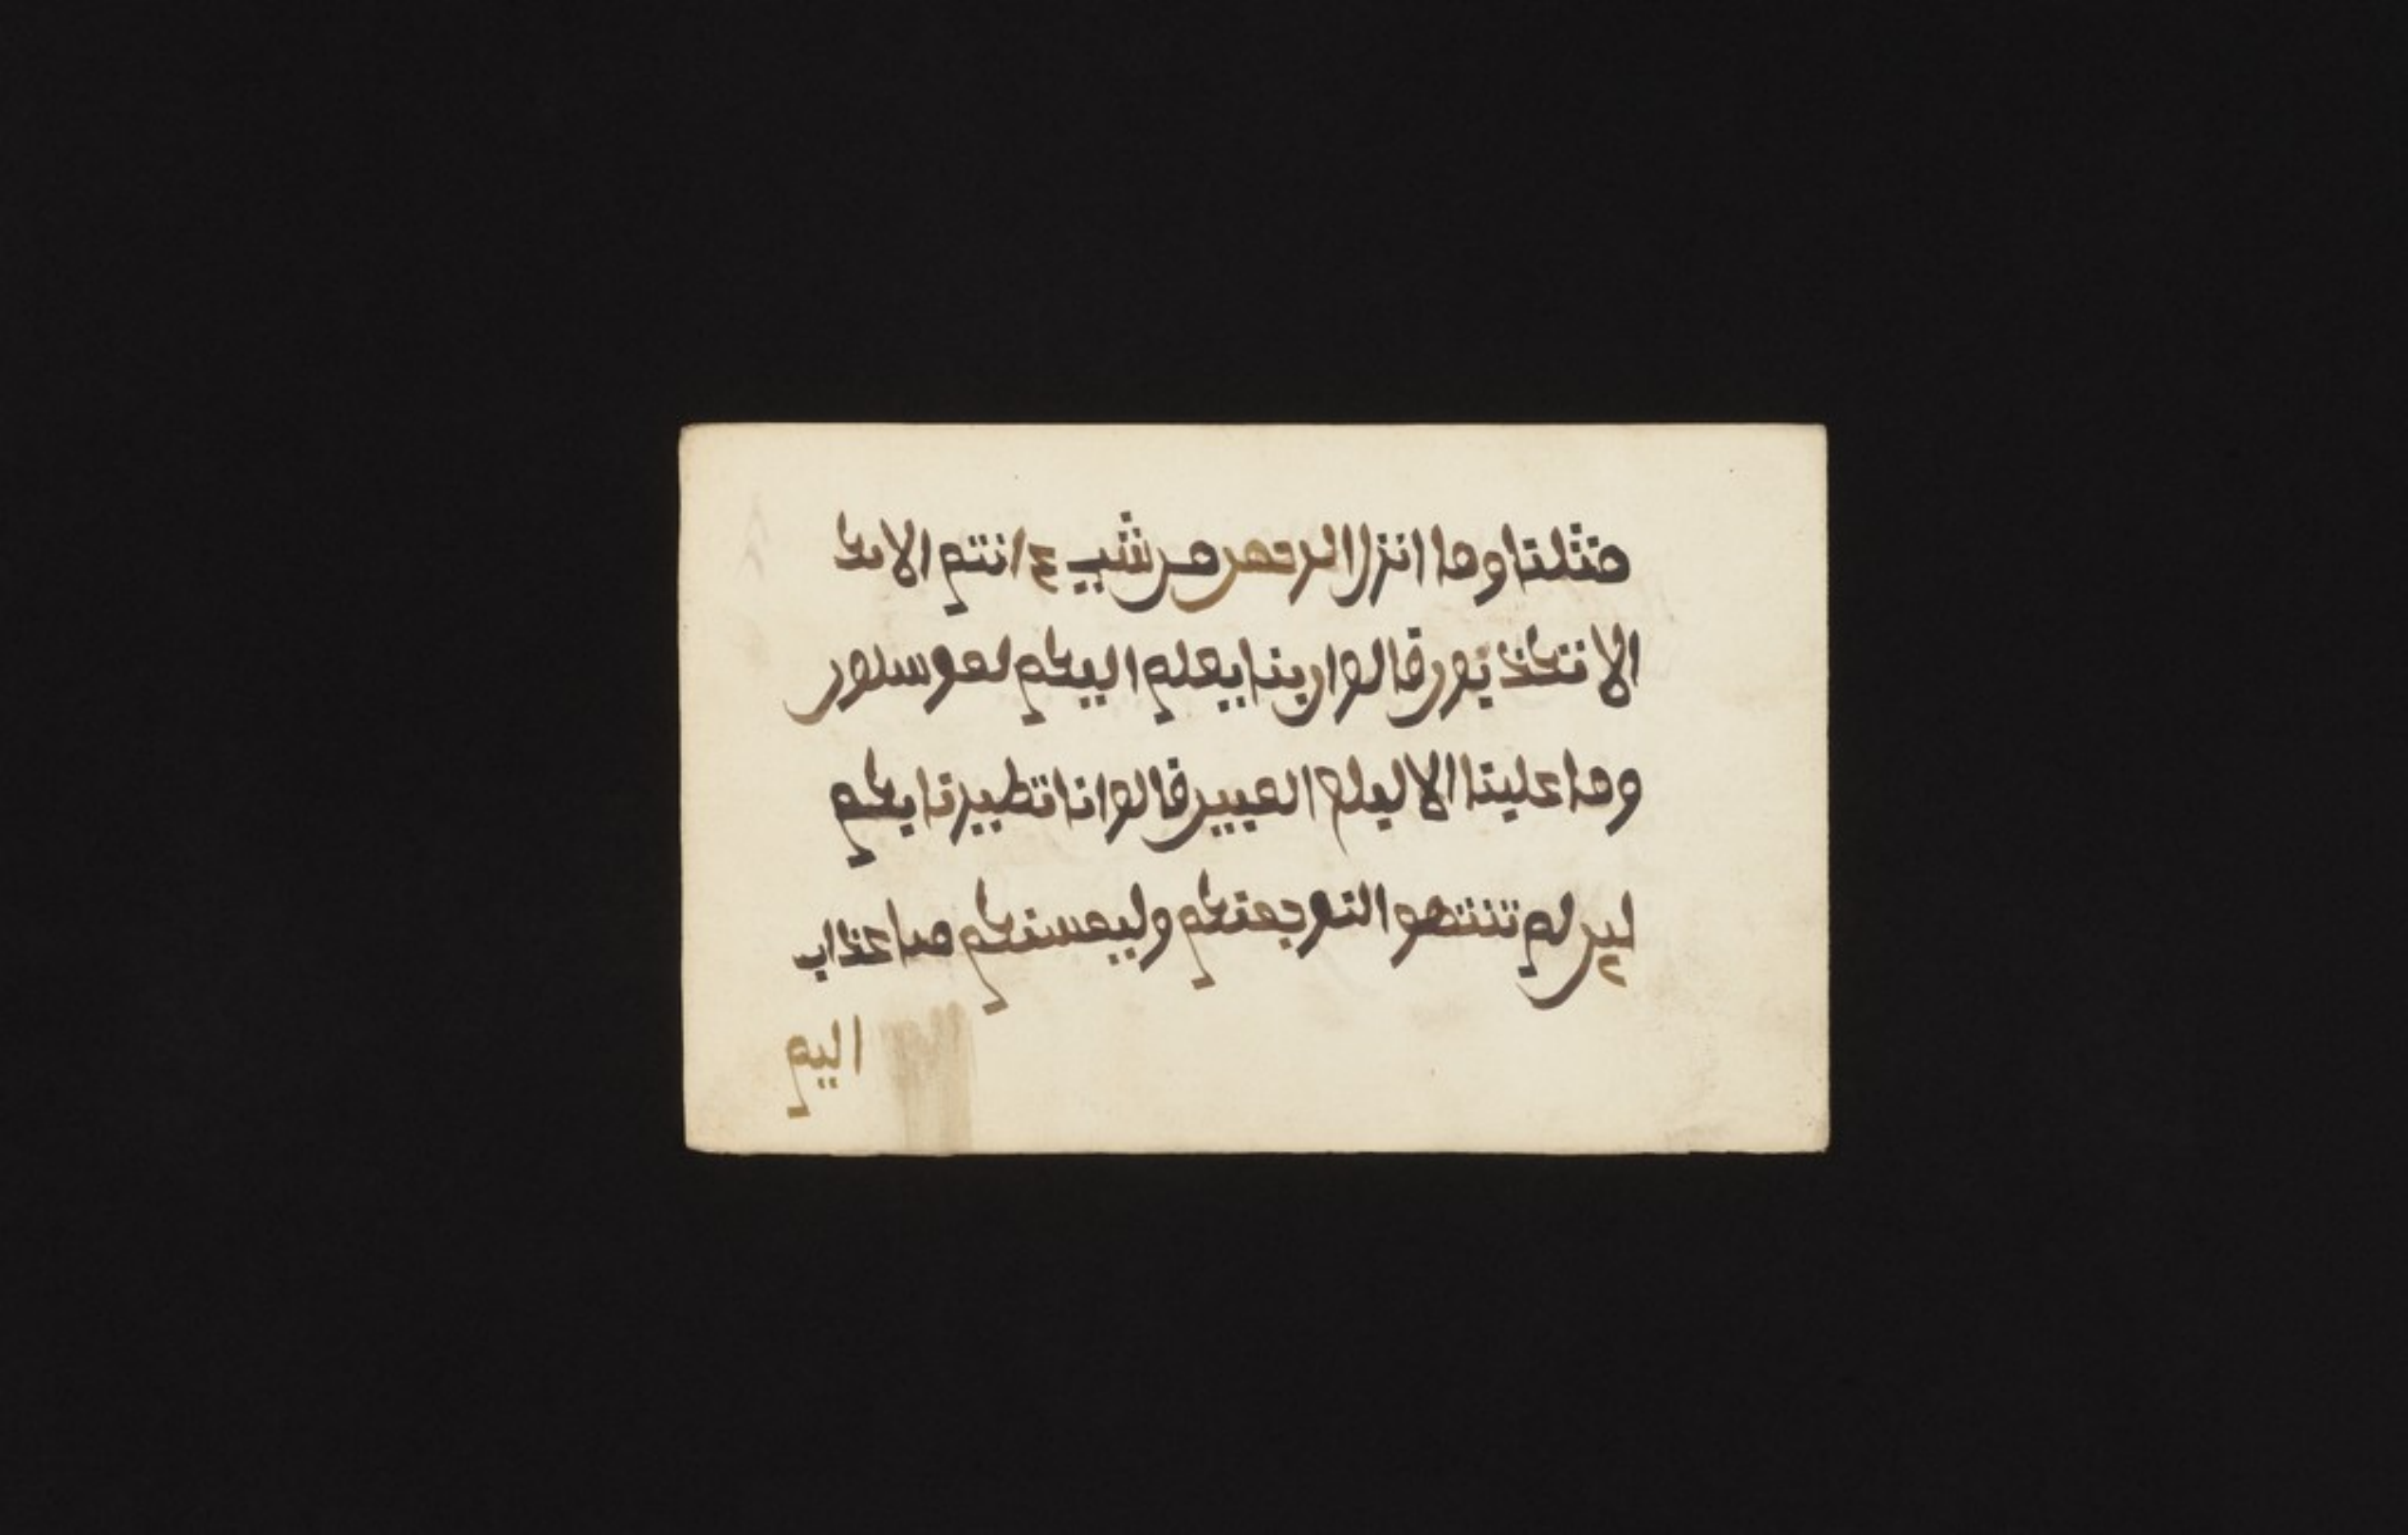 مثلنا وما انزل الرحمن من شيء انتم الا
الا تكذبون قالوا ربنا يعلم اليكم لمرسلون
وما علينا الا لبلغ المبين قالوا انا تطيرنا بكم
لين لم تنتهوا النرجمنكم وليمسنكم منا عذاب
اليم